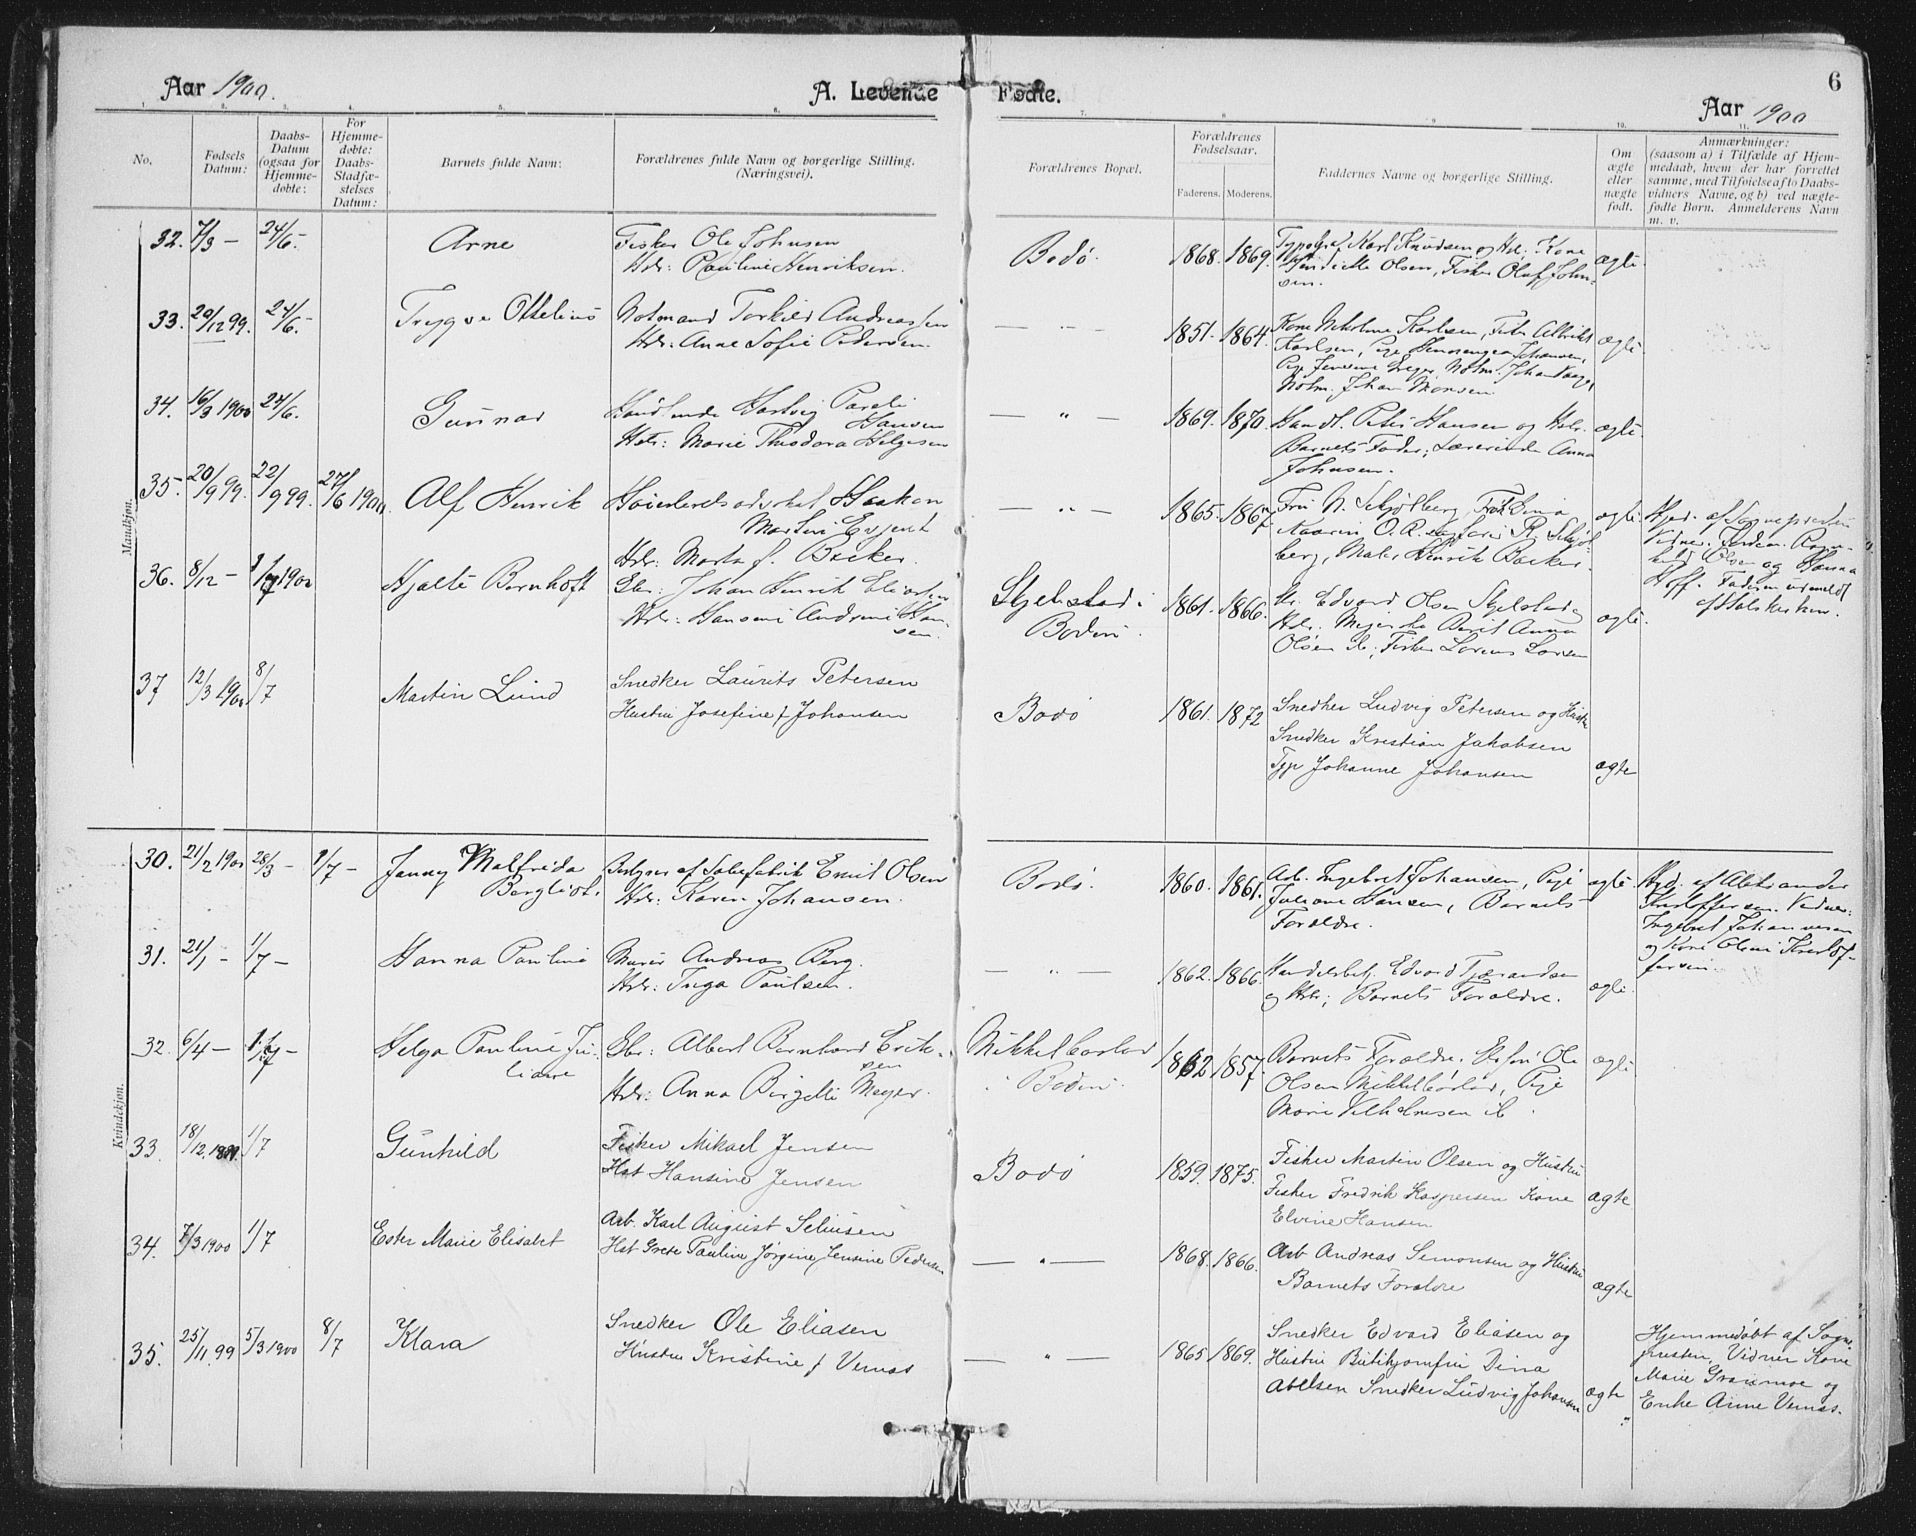 Aar 1900.
A. Levende Fødte.
Aar 1900
6
1. 2. 3. 4. 5. 6. 7. 8. 9. 10. 11.
No.
Fødsels Datum:
Daabs-Datum (ogsaa for Hjemme-døbte:
For Hjemme-døbte: Daabs-Stadfæ-stelses Datum:
Barnets fulde Navn:
Forældrenes fulde Navn og borgerlige Stilling. (Næringsvei).
Forældrenes Bopæl.
Forældrenes Fødselsaar.
Faderens. Moderens.
Faddernes Navne og borgerlige Stilling.
Om ægte eller uægte født.
Anmærkninger: (saasom a) i Tilfælde af Hjem-medaab, hvem der har forrettet samme, med Tilføielse af to Daabs-vidners Navne, og b) ved uægte-fødte Børn. Anmelderens Navn m. v.
Mandkjøn.
32. 7/3 – 24/6. Arne
Fisker Ole Johnsen
Hstr: Pauline Henriksen.
Bodø. 1868. 1869.
Typograf Karl Knudsen og Hstr. Kone
Olsen, Fisker Oluf John-
sen.
ægte.
33. 20/12 99. 24/6. Trygve Ottelius
Notmand Torkild Andreassen
Hstr: Anne Sofie Pedersen.
— " — 1851. 1864.
Karlsen, Fisker Albrikt
Karlsen, Pige Johansen,
Pige Jensine Notm. Johan
Notm. Johan Monsen
ægte
34. 16/3 1900 24/6. Gunnar
Handlende Hartvig Pareli
Hansen
Hstr: Marie Theodora Helgesen
— " — 1869. 1870.
Handl. Peter Hansen og Hstr.
Barnets Fader; Lærerinde Anna
Johnsen.
ægte.
35. 20/9 99. 22/9 99. 27/6 1900. Alf Henrik
Høiesteretsadvokat Haakon
Martin Evjent
Hstr: Marta f. Backer.
— " — 1865. 1867
Fru N. Skjølberg, Frk Dina
O. R. R. Skjøl-
berg, Maler Henrik Backer.
ægte.
Hjd. af Sognepresten
Vidner. Jordem. Ragn-
hild Olsen og Hanna
Hoff. Faderen udmeldt
af Statskirken.
36. 8/12 – 1/7 1900 Hjalte Bernhoft
Gbr: Johan Henrik Eliassen
Hstr: Hansine Andrine Han-
sen.
Skjelstad i
Bodin. 1861. 1866.
Gr. Edvard Olsen Skjelstad og
Hstr. Meierske Berit Anna
Olsen ib; Fisker Lorens Larsen
ægte.
37 12/3 1900 8/7 Martin Lund
Snedker Laurits Petersen
Hustru Josefine f Johansen
Bodø 1861. 1872
Snedker Ludvig Petersen og Hustru
Snedker Kristian Jakobsen
Typ Johanne Johansen
ægte
Kvindekjøn.
30. 21/2 1900 28/3 – 1/7 – Janny Malfrida
Bergliot.
Bestyrer af Sæbefabrik Emil Olsen
Hstr: Karen Johansen.
Bodø. 1860. 1861.
Arb. Ingebret Johansen, Pige
Juliane Hansen, Barnets
Forældre.
ægte.
Hjd. af Aleksander
Kristoffersen. Vidner:
Ingebret Johannesen
og Kone Oline Kristof-
fersen.
31. 21/1 – 1/7 – Hanna Pauline
Murer Andreas Berg.
Hstr: Inga Paulsen.
— " — 1862. 1866.
Handelsbetj. Edvard Tjærandsen
og Hstr; Barnets Forældre.
ægte.
32. 6/4 – 1/7 – Helga Pauline Ju-
liane
Gbr: Albert Bernhard Erik-
sen
Hstr: Anna Birgitte Meyer.
Mikkelbostad
i Bodin. 1862 1857.
Barnets Forældre. Ole
Olsen Mikkelbostad, Pige
Marie Vilhelmsen ib.
ægte.
33. 18/12. 1899. 1/7 Gunhild
Fisker Mikael Jensen
Hst Hansine Jensen
Bodø 1859. 1875.
Fisker Martin Olsen og Hustru
Fisker Fredrik Kaspersen Kone
Elvine Hansen
ægte
34. 7/3 1900 1/7 Ester Marie Elisabet
Arb. Karl August Seliusen
Hst Grete Pauline Jørgine Jensine Pedersen
— " — 1868. 1866.
Arb Andreas Simonsen og Hustru
Barnets Forældre
ægte
35. 25/11 99 5/3 1900 8/7 Klara
Snedker Ole Eliasen
Hustru Kristine f Vernas
— " — 1865 1869.
Snedker Edvard Eliasen og
Hustru Butikjomfru Dina
Abelsen Snedker Ludvig Johansen
ægte
Hjemmedøbt af Sogne-
presten, Vidner Kone
Marie Granmoe og
Enke Anne Vernas.